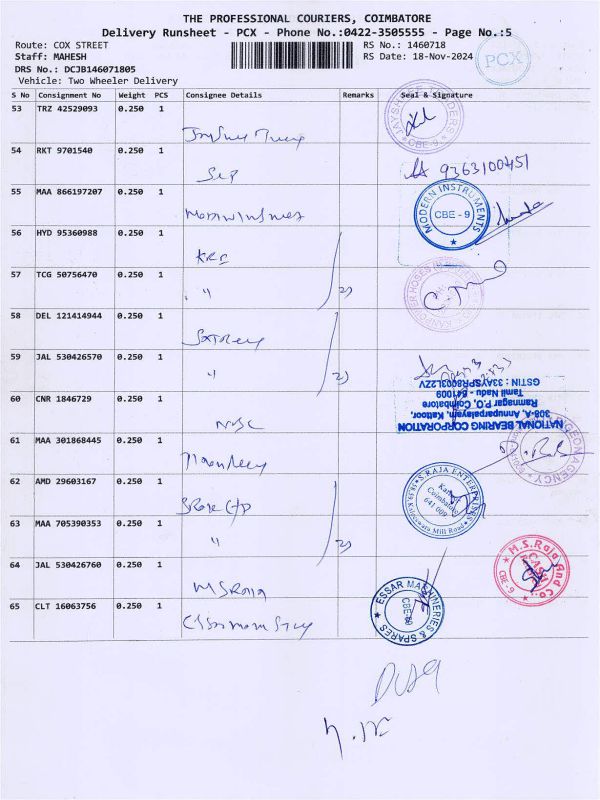 THE PROFESSIONAL COURIERS, COIMBATORE
Delivery Runsheet - PCX - Phone No.:0422-3505555 - Page No.:5
Route: COX STREET
Staff: MAHESH
DRS No.: DCJB146071805
Vehicle: Two Wheeler Delivery
RS No.: 1460718
RS Date: 18-Nov-2024
PCX
S No Consignment No Weight PCS Consignee Details Remarks Seal & Signature
53 TRZ 42529093 0.250 1
CBE-9
54 RKT 9701540 0.250 1
9363100451
55 MAA 866197207 0.250 1
MODERN INSTRUMENTS CBE - 9
56 HYD 95360988 0.250 1
KRS
57 TCG 50756470 0.250 1
" 2)
58 DEL 121414944 0.250 1
59 JAL 530426570 0.250 1
" 2)
60 CNR 1846729 0.250 1
NBC
NATIONAL BEARING CORPORATION
308-A, Annuparpalayam, Kattoor,
Ramnagar P.O, Coimbatore
Tamil Nadu - 641009
GSTIN : 33AYSPR8003L2ZV
61 MAA 301868445 0.250 1
62 AMD 29603167 0.250 1
S.RAJA ENTERPRISES
Coimbatore
641 009
63 MAA 705390353 0.250 1
" 2)
64 JAL 530426760 0.250 1
MSRaja
M.S.Raja And Co. CBE-9
65 CLT 16063756 0.250 1
ESSAR MACHINERIES & SPARES CBE-9